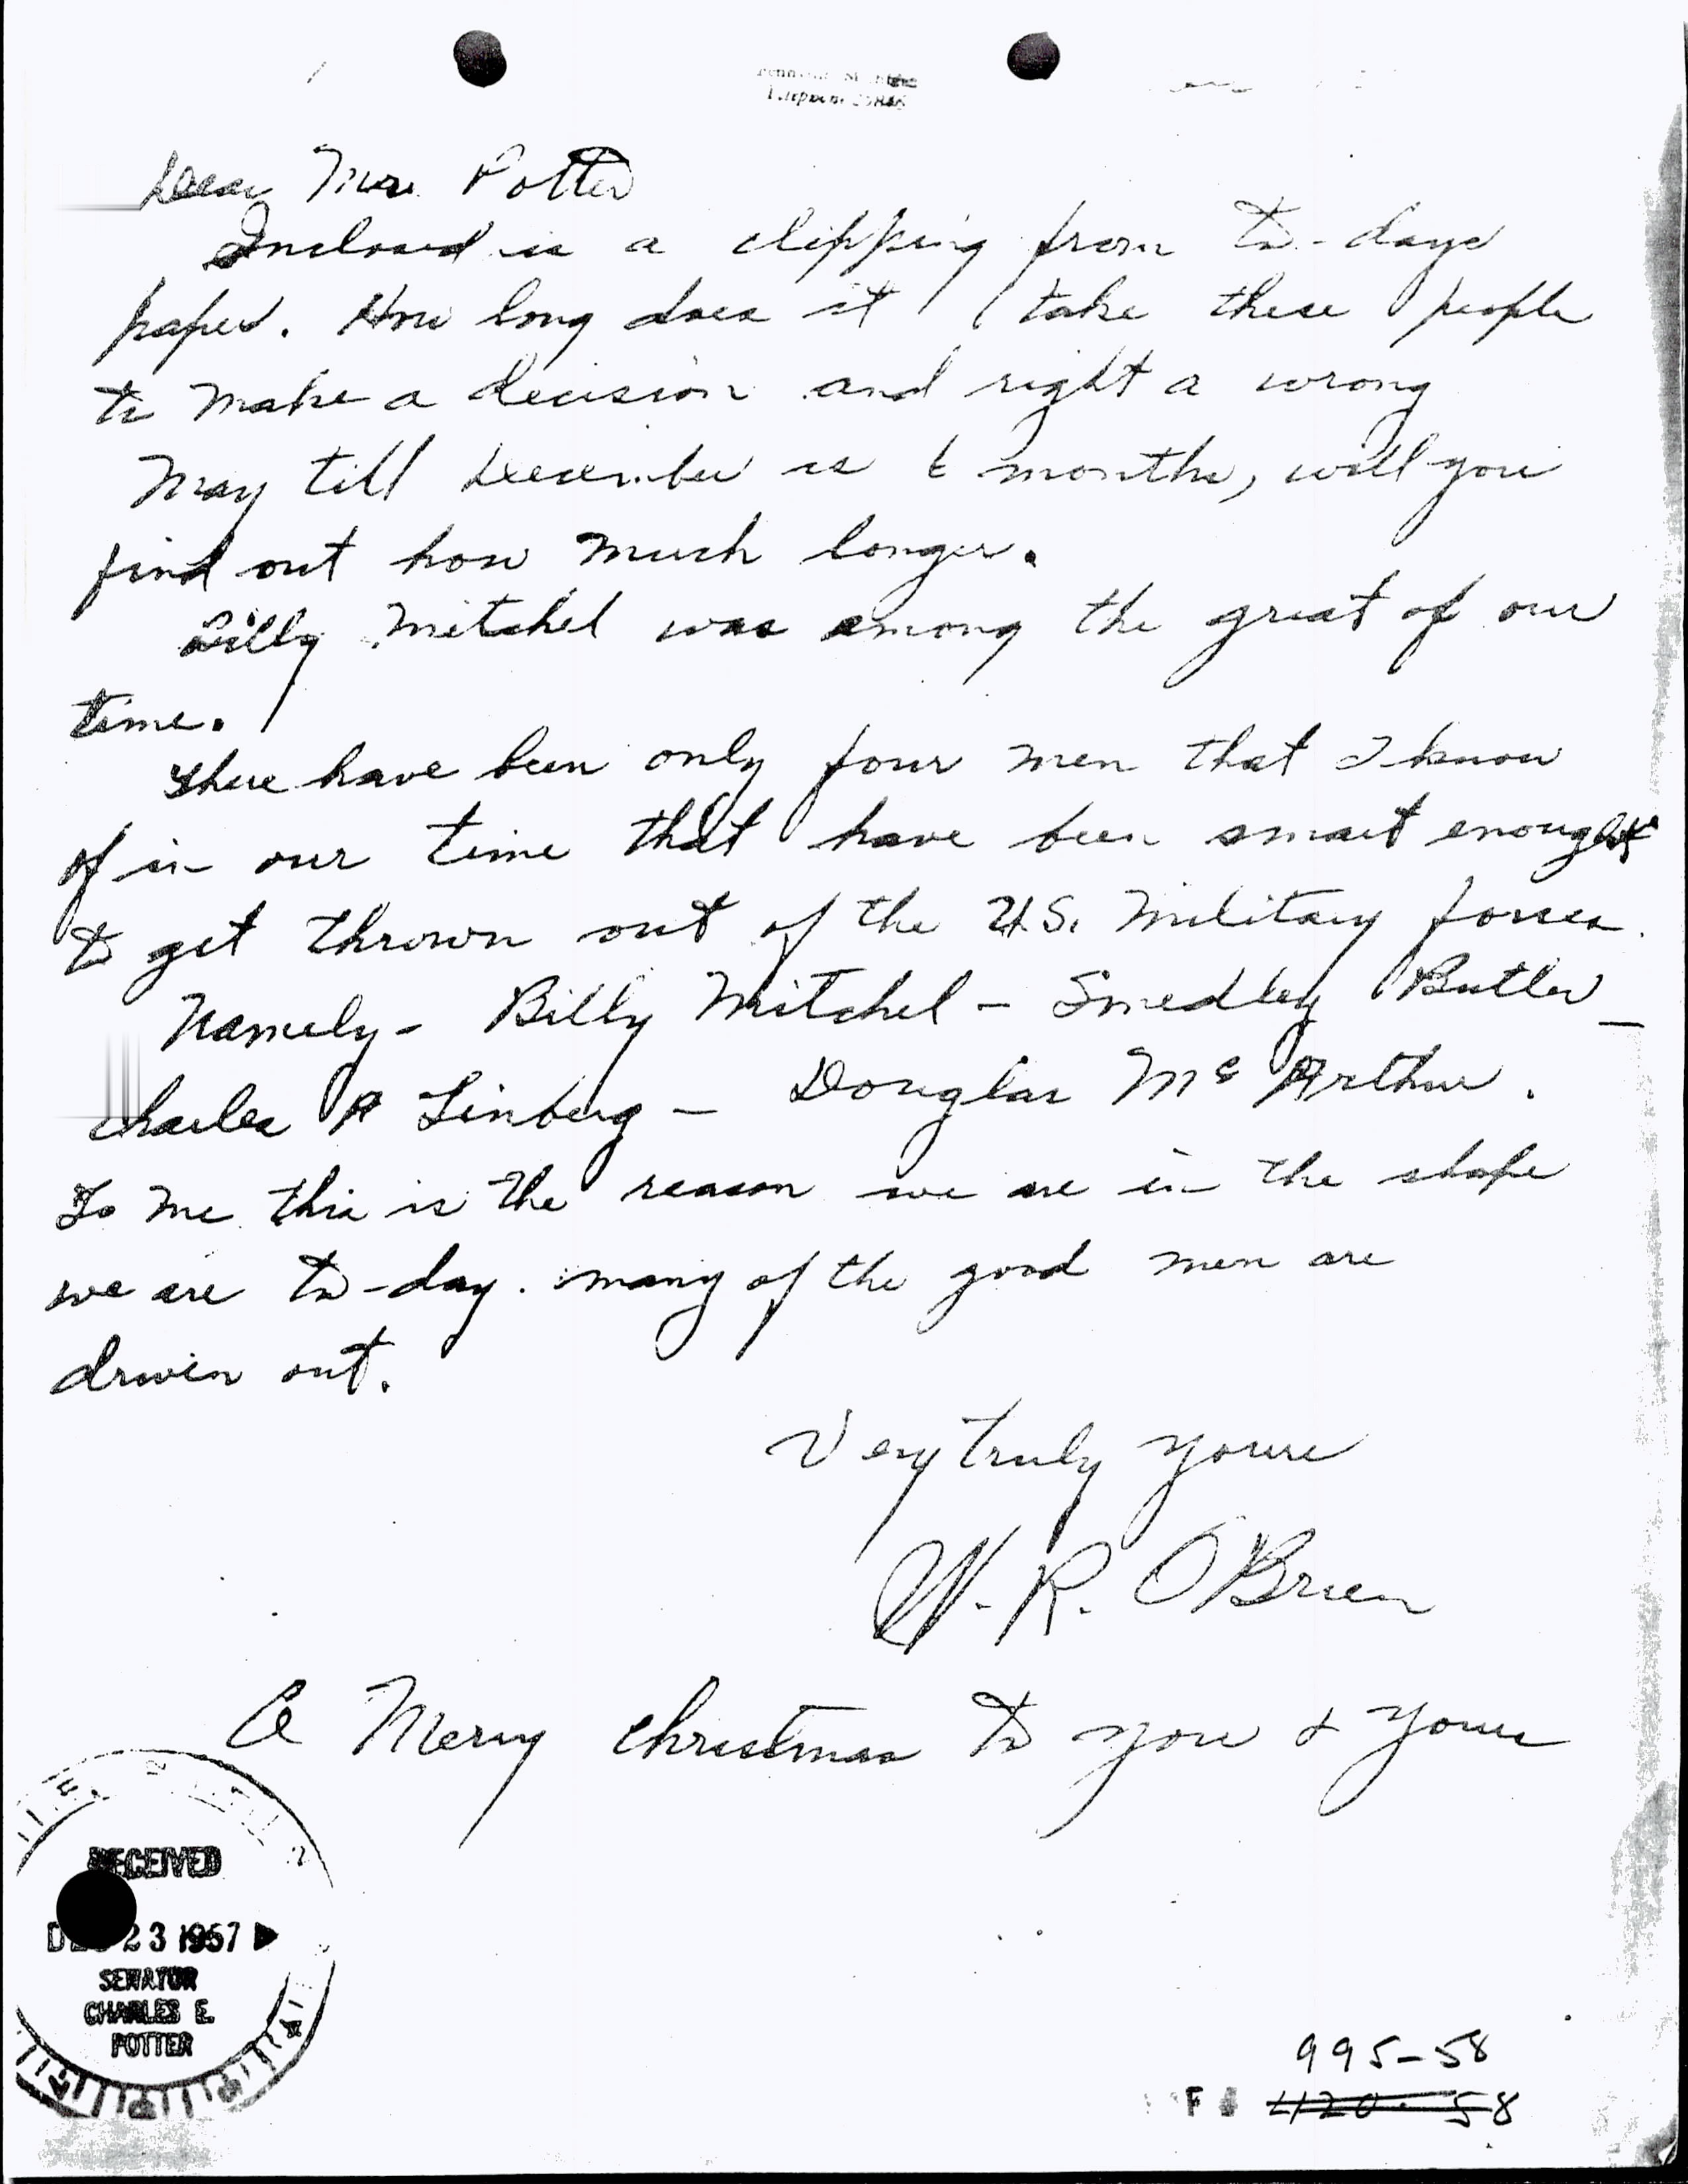 Dear Mr. Potter
Inclosed is a clipping from to-days
paper. How long does it take these people
to make a decision and right a wrong
May till December is 6 months, will you
find out how much longer.
Billy Mitchel was among the great of our
time.
There have been only four men that I know
of in our time that have been smart enough
to get thrown out of the U.S. Military forces.
Namely - Billy Mitchel - Smedley Butler -
Charles A Linberg - Douglas Mc Arthur.
To me this is the reason we are in the shape
we are to-day. many of the good men are
driven out.
Very truly yours
W. R. O'Brien
A Merry Christmas to you & yours
RECEIVED
DEC 23 1957
SENATOR
CHARLES E.
POTTER
995-58
F 1120-58